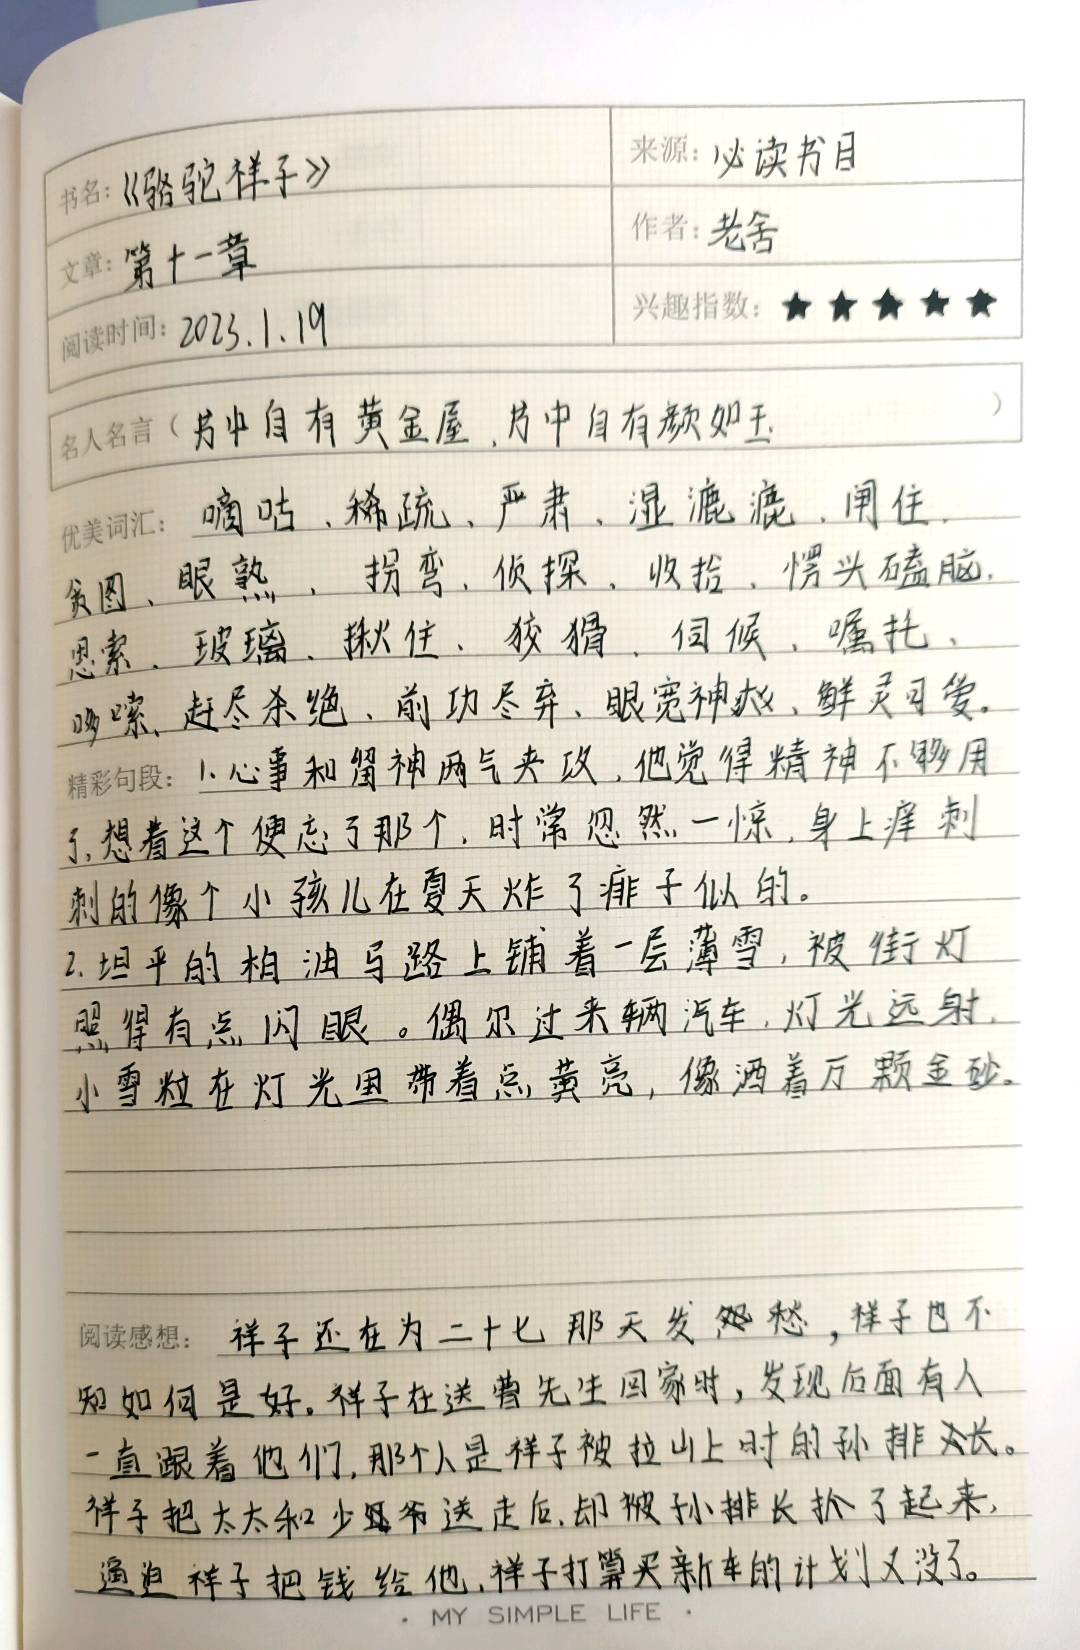 书名：《骆驼祥子》 来源：必读书目
文章：第十一章 作者：老舍
阅读时间：2023.1.19 兴趣指数：★★★★★
名人名言（书中自有黄金屋，书中自有颜如玉）
优美词汇：嘀咕、稀疏、严肃、湿漉漉、闸住、
贪图、眼熟、拐弯、侦探、收拾、愣头磕脑、
思索、玻璃、揪住、狡猾、伺候、嘱托、
哆嗦、赶尽杀绝、前功尽弃、眼宽神松、鲜灵可爱。
精彩句段：1.心事和留神两气夹攻，他觉得精神不够用
了，想着这个便忘了那个，时常忽然一惊，身上痒刺
刺的像个小孩儿在夏天炸了痱子似的。
2.坦平的柏油马路上铺着一层薄雪，被街灯
照得有点闪眼。偶尔过来辆汽车，灯光远射，
小雪粒在灯光里带着点黄亮，像洒着万颗金砂。
阅读感想：祥子还在为二十七那天发愁，祥子也不
知如何是好。祥子在送曹先生回家时，发现后面有人
一直跟着他们，那个人是祥子被拉山上时的孙排长。
祥子把太太和少爷送走后，却被孙排长扒了起来，
逼迫祥子把钱给他，祥子打算买新车的计划又没了。
· MY SIMPLE LIFE ·